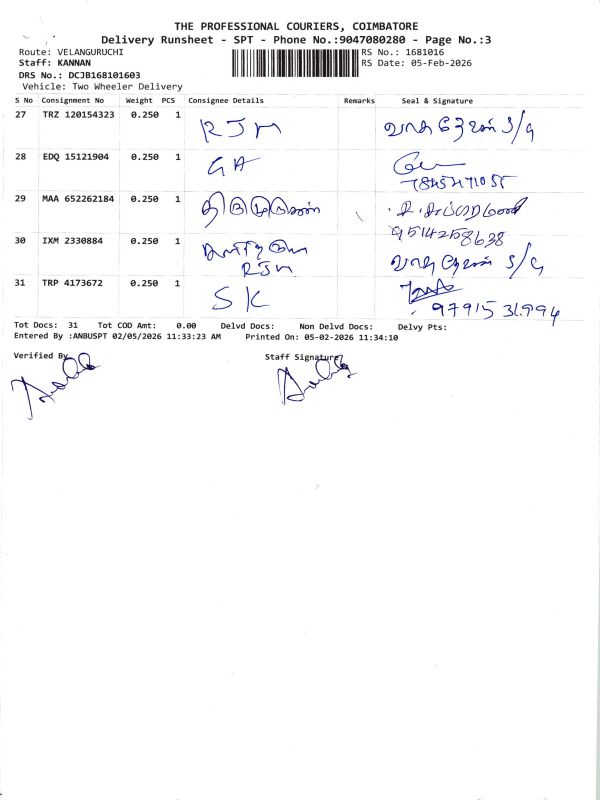 THE PROFESSIONAL COURIERS, COIMBATORE
Delivery Runsheet - SPT - Phone No.:9047080280 - Page No.:3
Route: VELANGURUCHI
RS No.: 1681016
Staff: KANNAN
RS Date: 05-Feb-2026
DRS No.: DCJB168101603
Vehicle: Two Wheeler Delivery
S No Consignment No Weight PCS Consignee Details Remarks Seal & Signature
27 TRZ 120154323 0.250 1 RJM
28 EDQ 15121904 0.250 1 GA
29 MAA 652262184 0.250 1
9514258638
30 IXM 2330884 0.250 1
RJM
31 TRP 4173672 0.250 1 SK
9791531994
Tot Docs: 31 Tot COD Amt: 0.00 Delvd Docs: Non Delvd Docs: Delvy Pts:
Entered By :ANBUSPT 02/05/2026 11:33:23 AM Printed On: 05-02-2026 11:34:10
Verified By
Staff Signature